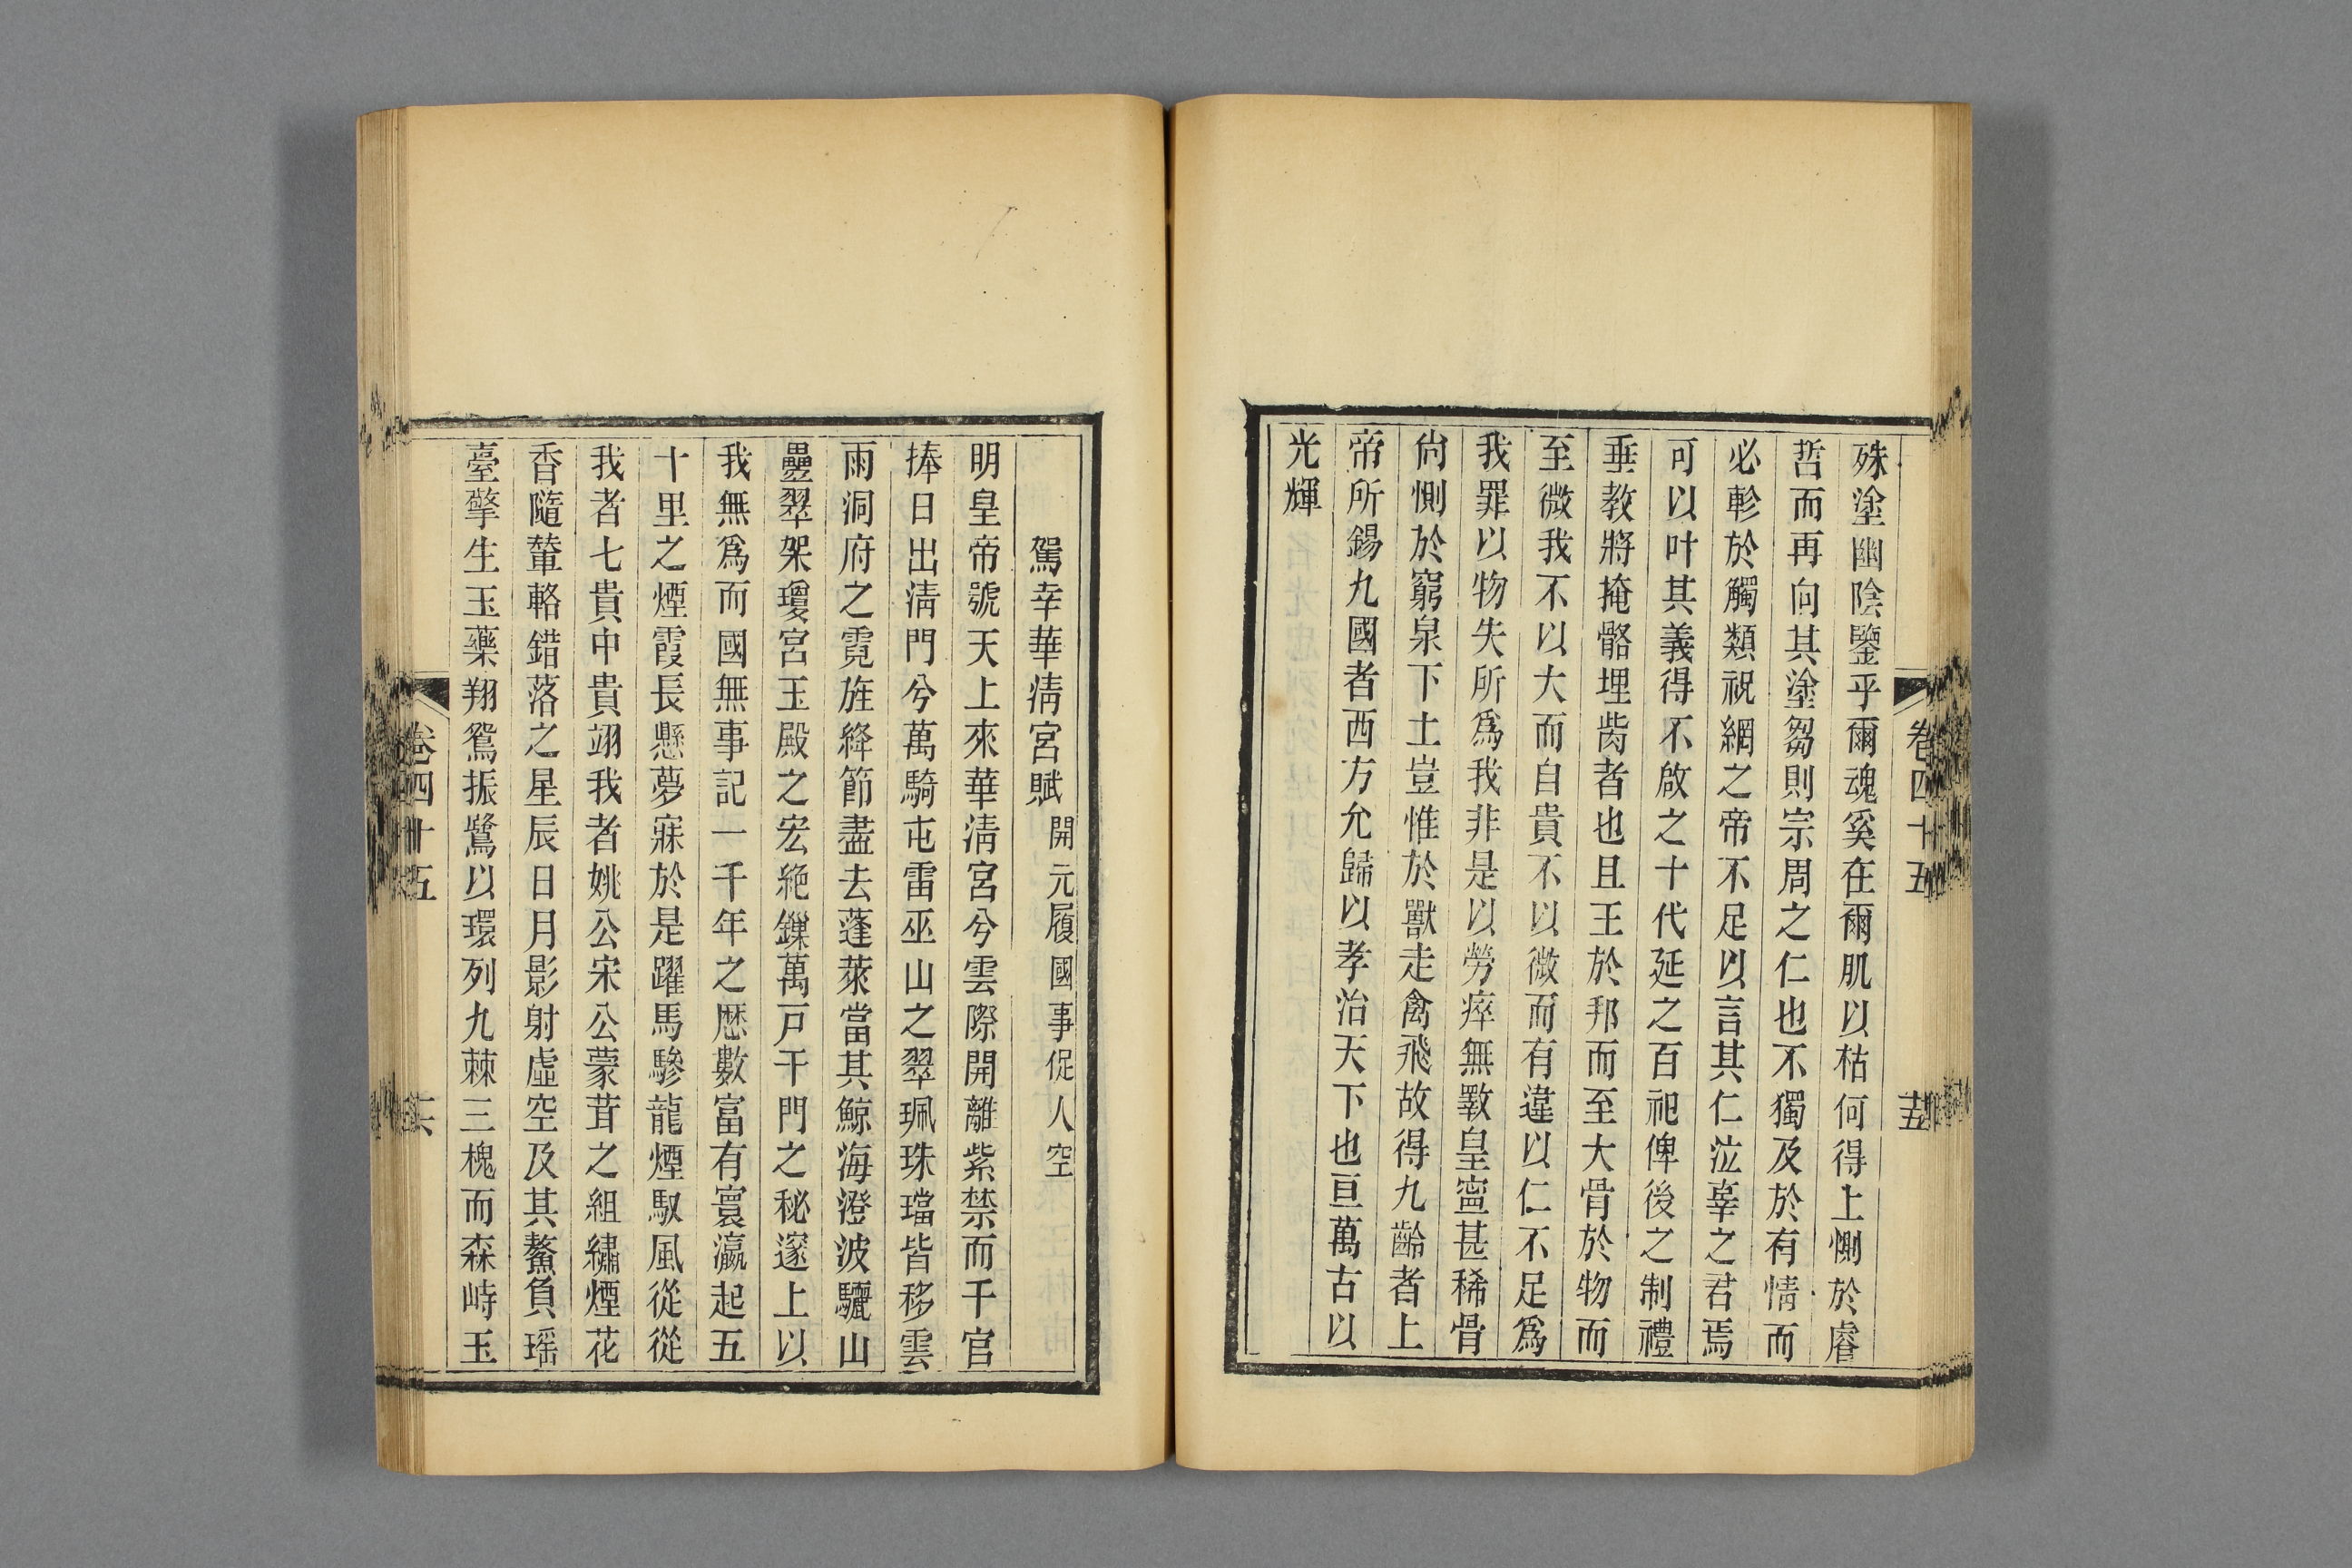 殊塗幽陰鑒乎爾魂奚在爾肌以枯何得上惻於睿
哲而再向其塗芻則宗周之仁也不獨及於有情而
必軫於觸類祝網之帝不足以言其仁泣辜之君焉
可以叶其義得不啟之十代延之百祀俾後之制禮
垂教將掩骼埋胔者也且王於邦而至大骨於物而
至微我不以大而自貴不以微而有違以仁不足爲
我罪以物失所爲我非是以勞瘁無斁皇寍甚稀骨
尙惻於窮泉下土豈惟於獸走禽飛故得九齡者上
帝所錫九國者西方允歸以孝治天下也亘萬古以
光輝
卷四十五
十五
駕幸華淸宮賦開元履國事促人空
明皇帝號天上來華淸宮兮雲際開離紫禁而千官
捧日出淸門兮萬騎屯雷巫山之翠珮珠璫皆移雲
雨洞府之霓旌絳節盡去蓬萊當其鯨海澄波驪山
疊翠架瓊宮玉殿之宏絶鏁萬戸千門之秘邃上以
我無爲而國無事記一千年之歷數富有寰瀛起五
十里之煙霞長懸夢寐於是躍馬驂龍煙馭風從從
我者七貴中貴翊我者姚公宋公蒙茸之組繡煙花
香隨輦輅錯落之星辰日月影射虛空及其鰲負瑶
臺擎生玉藥翔鴛振鷺以環列九棘三槐而森峙玉
卷四十五
十六